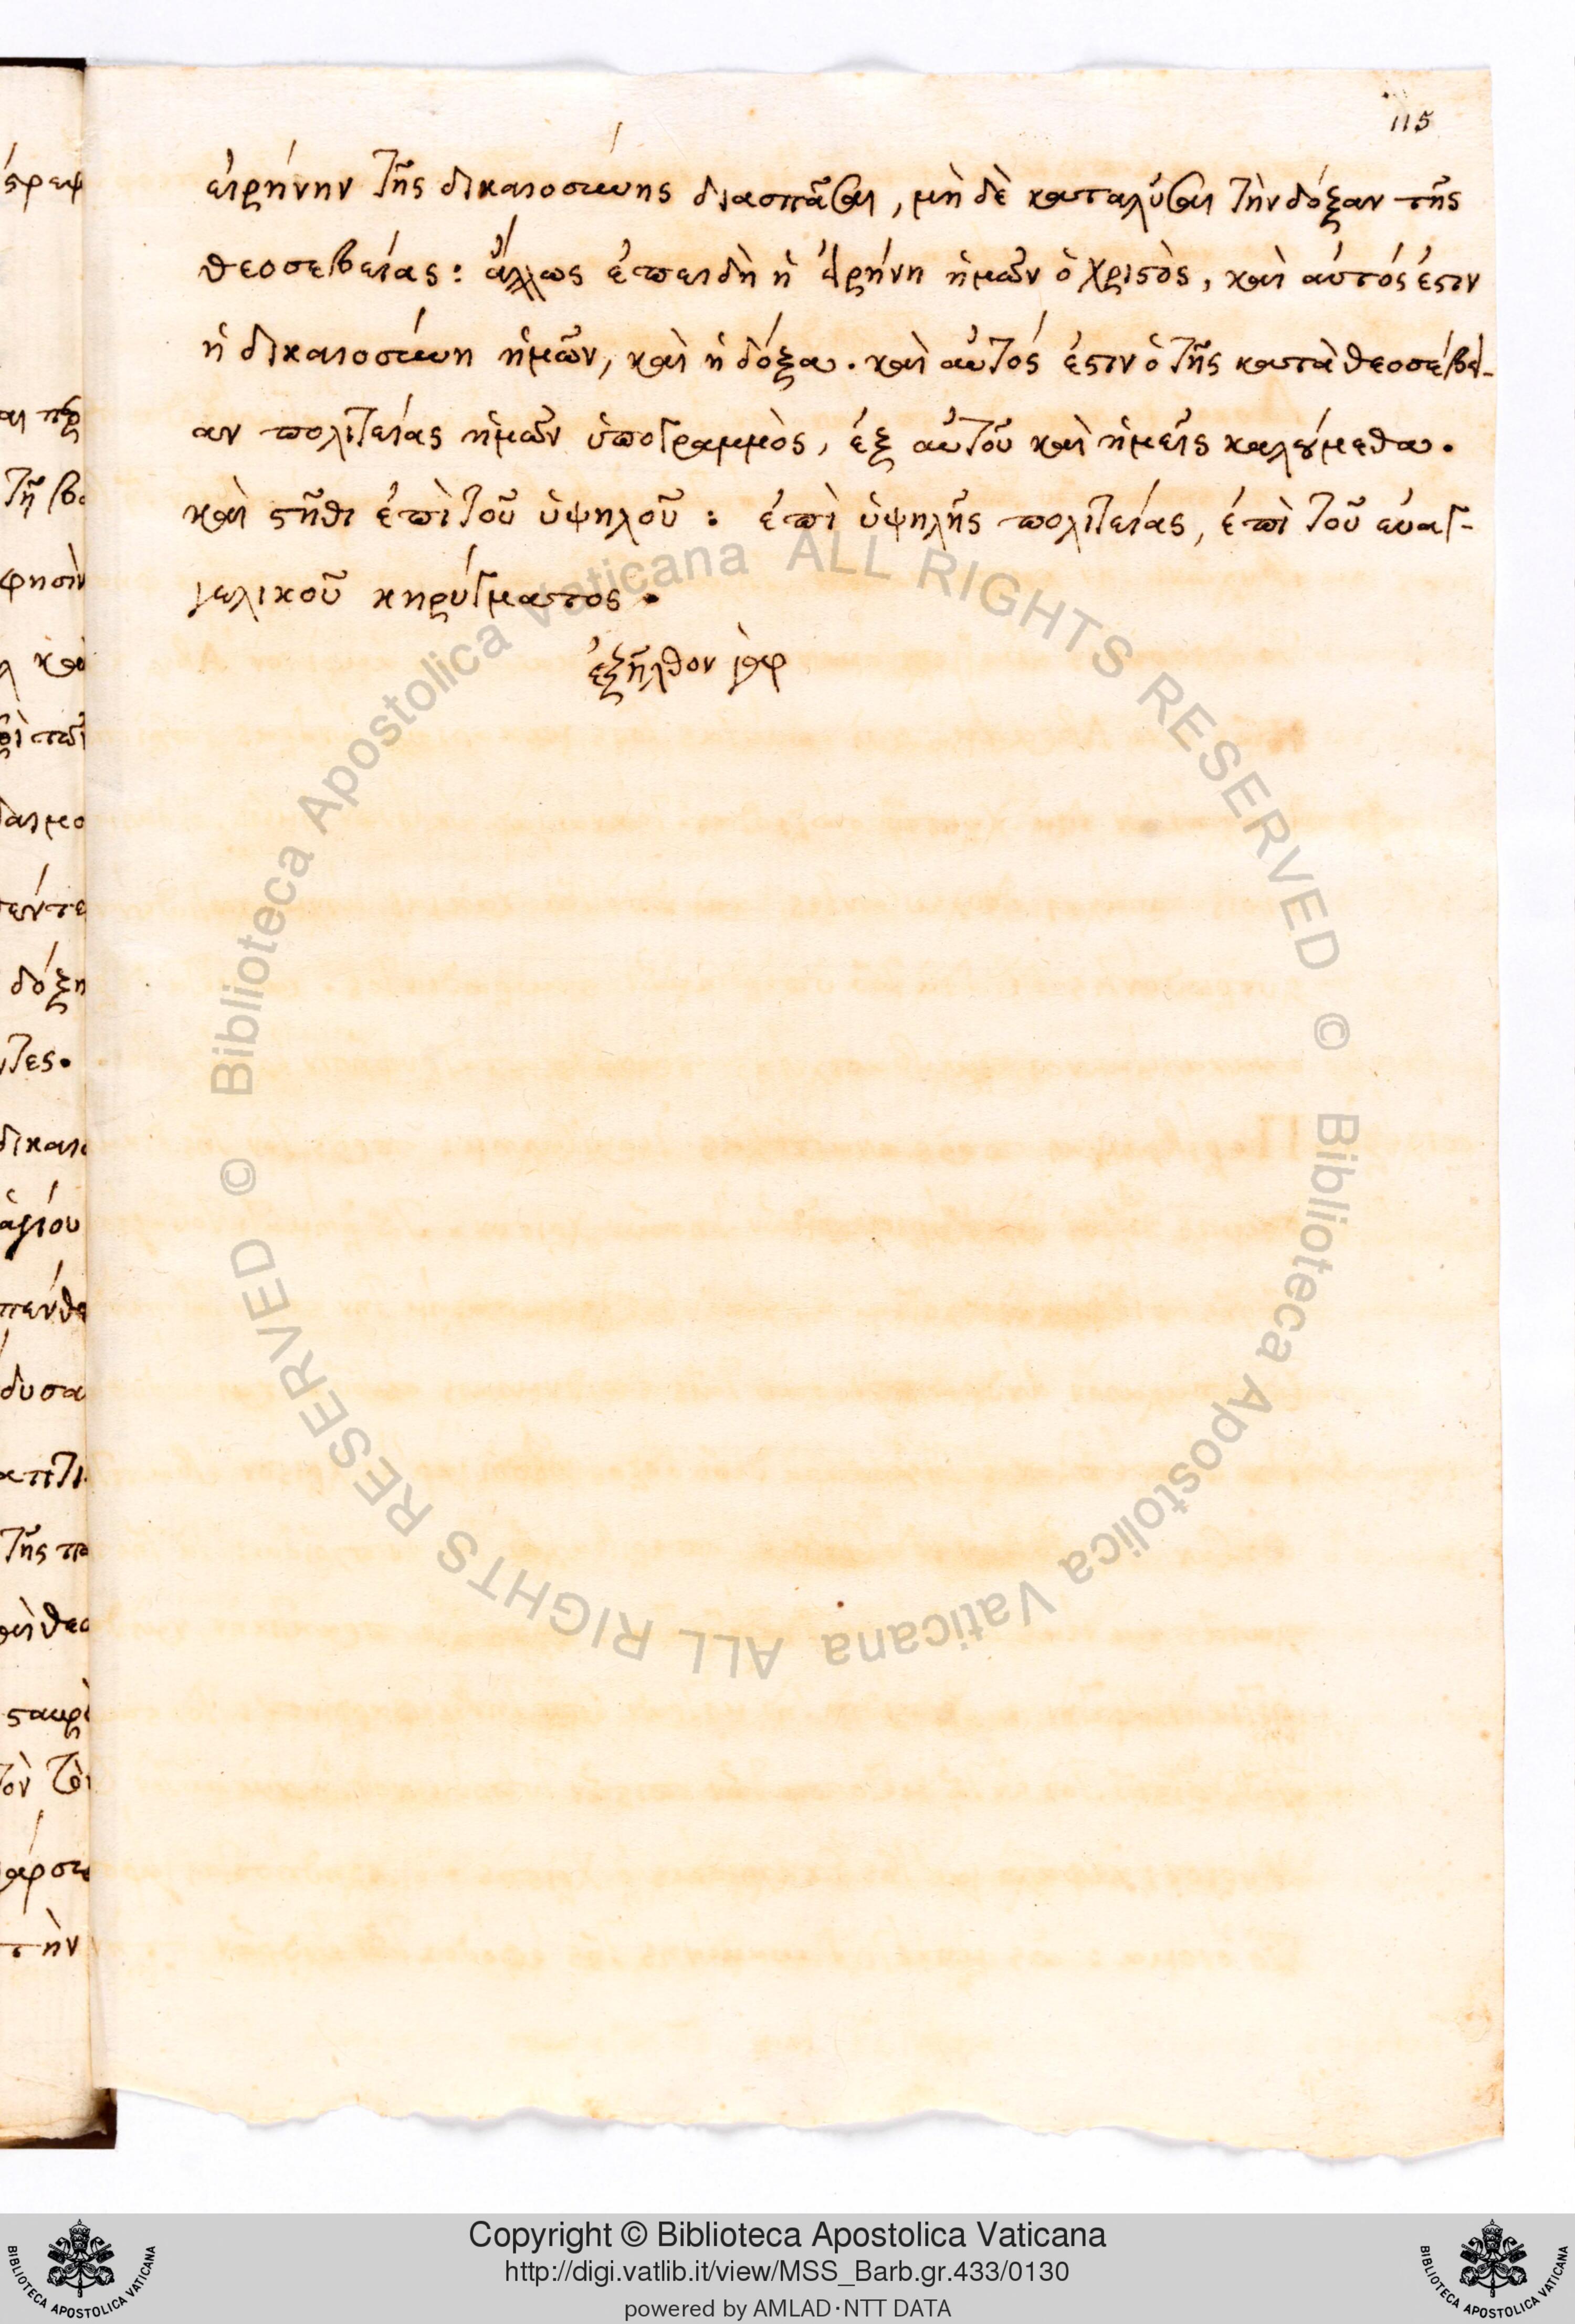 115
εἰρήνην τῆς δικαιοσύνης διασπᾶσαι, μὴ δὲ καταλῦσαι τὴν δόξαν τῆς
θεοσεβείας: ἄλλως ἐπειδὴ ἡ εἰρήνη ἡμῶν ὁ χριστὸς, καὶ αὐτός ἐστιν
ἡ δικαιοσύνη ἡμῶν, καὶ ἡ δόξα. καὶ αὐτός ἐστιν ὁ τῆς κατὰ θεοσέβει-
αν πολιτείας ἡμῶν ὑπογραμμὸς, ἐξ αὐτοῦ καὶ ἡμεῖς καλούμεθα.
καὶ στῆθι ἐπὶ τοῦ ὑψηλοῦ: ἐπὶ ὑψηλῆς πολιτείας, ἐπὶ τοῦ εὐαγ-
γελικοῦ κηρύγματος.
ἐξῆλθον γὰρ
© Biblioteca Apostolica Vaticana ALL RIGHTS RESERVED
© Biblioteca Apostolica Vaticana ALL RIGHTS RESERVED
Copyright © Biblioteca Apostolica Vaticana
http://digi.vatlib.it/view/MSS_Barb.gr.433/0130
powered by AMLAD·NTT DATA
BIBLIOTECA APOSTOLICA VATICANA
BIBLIOTECA APOSTOLICA VATICANA